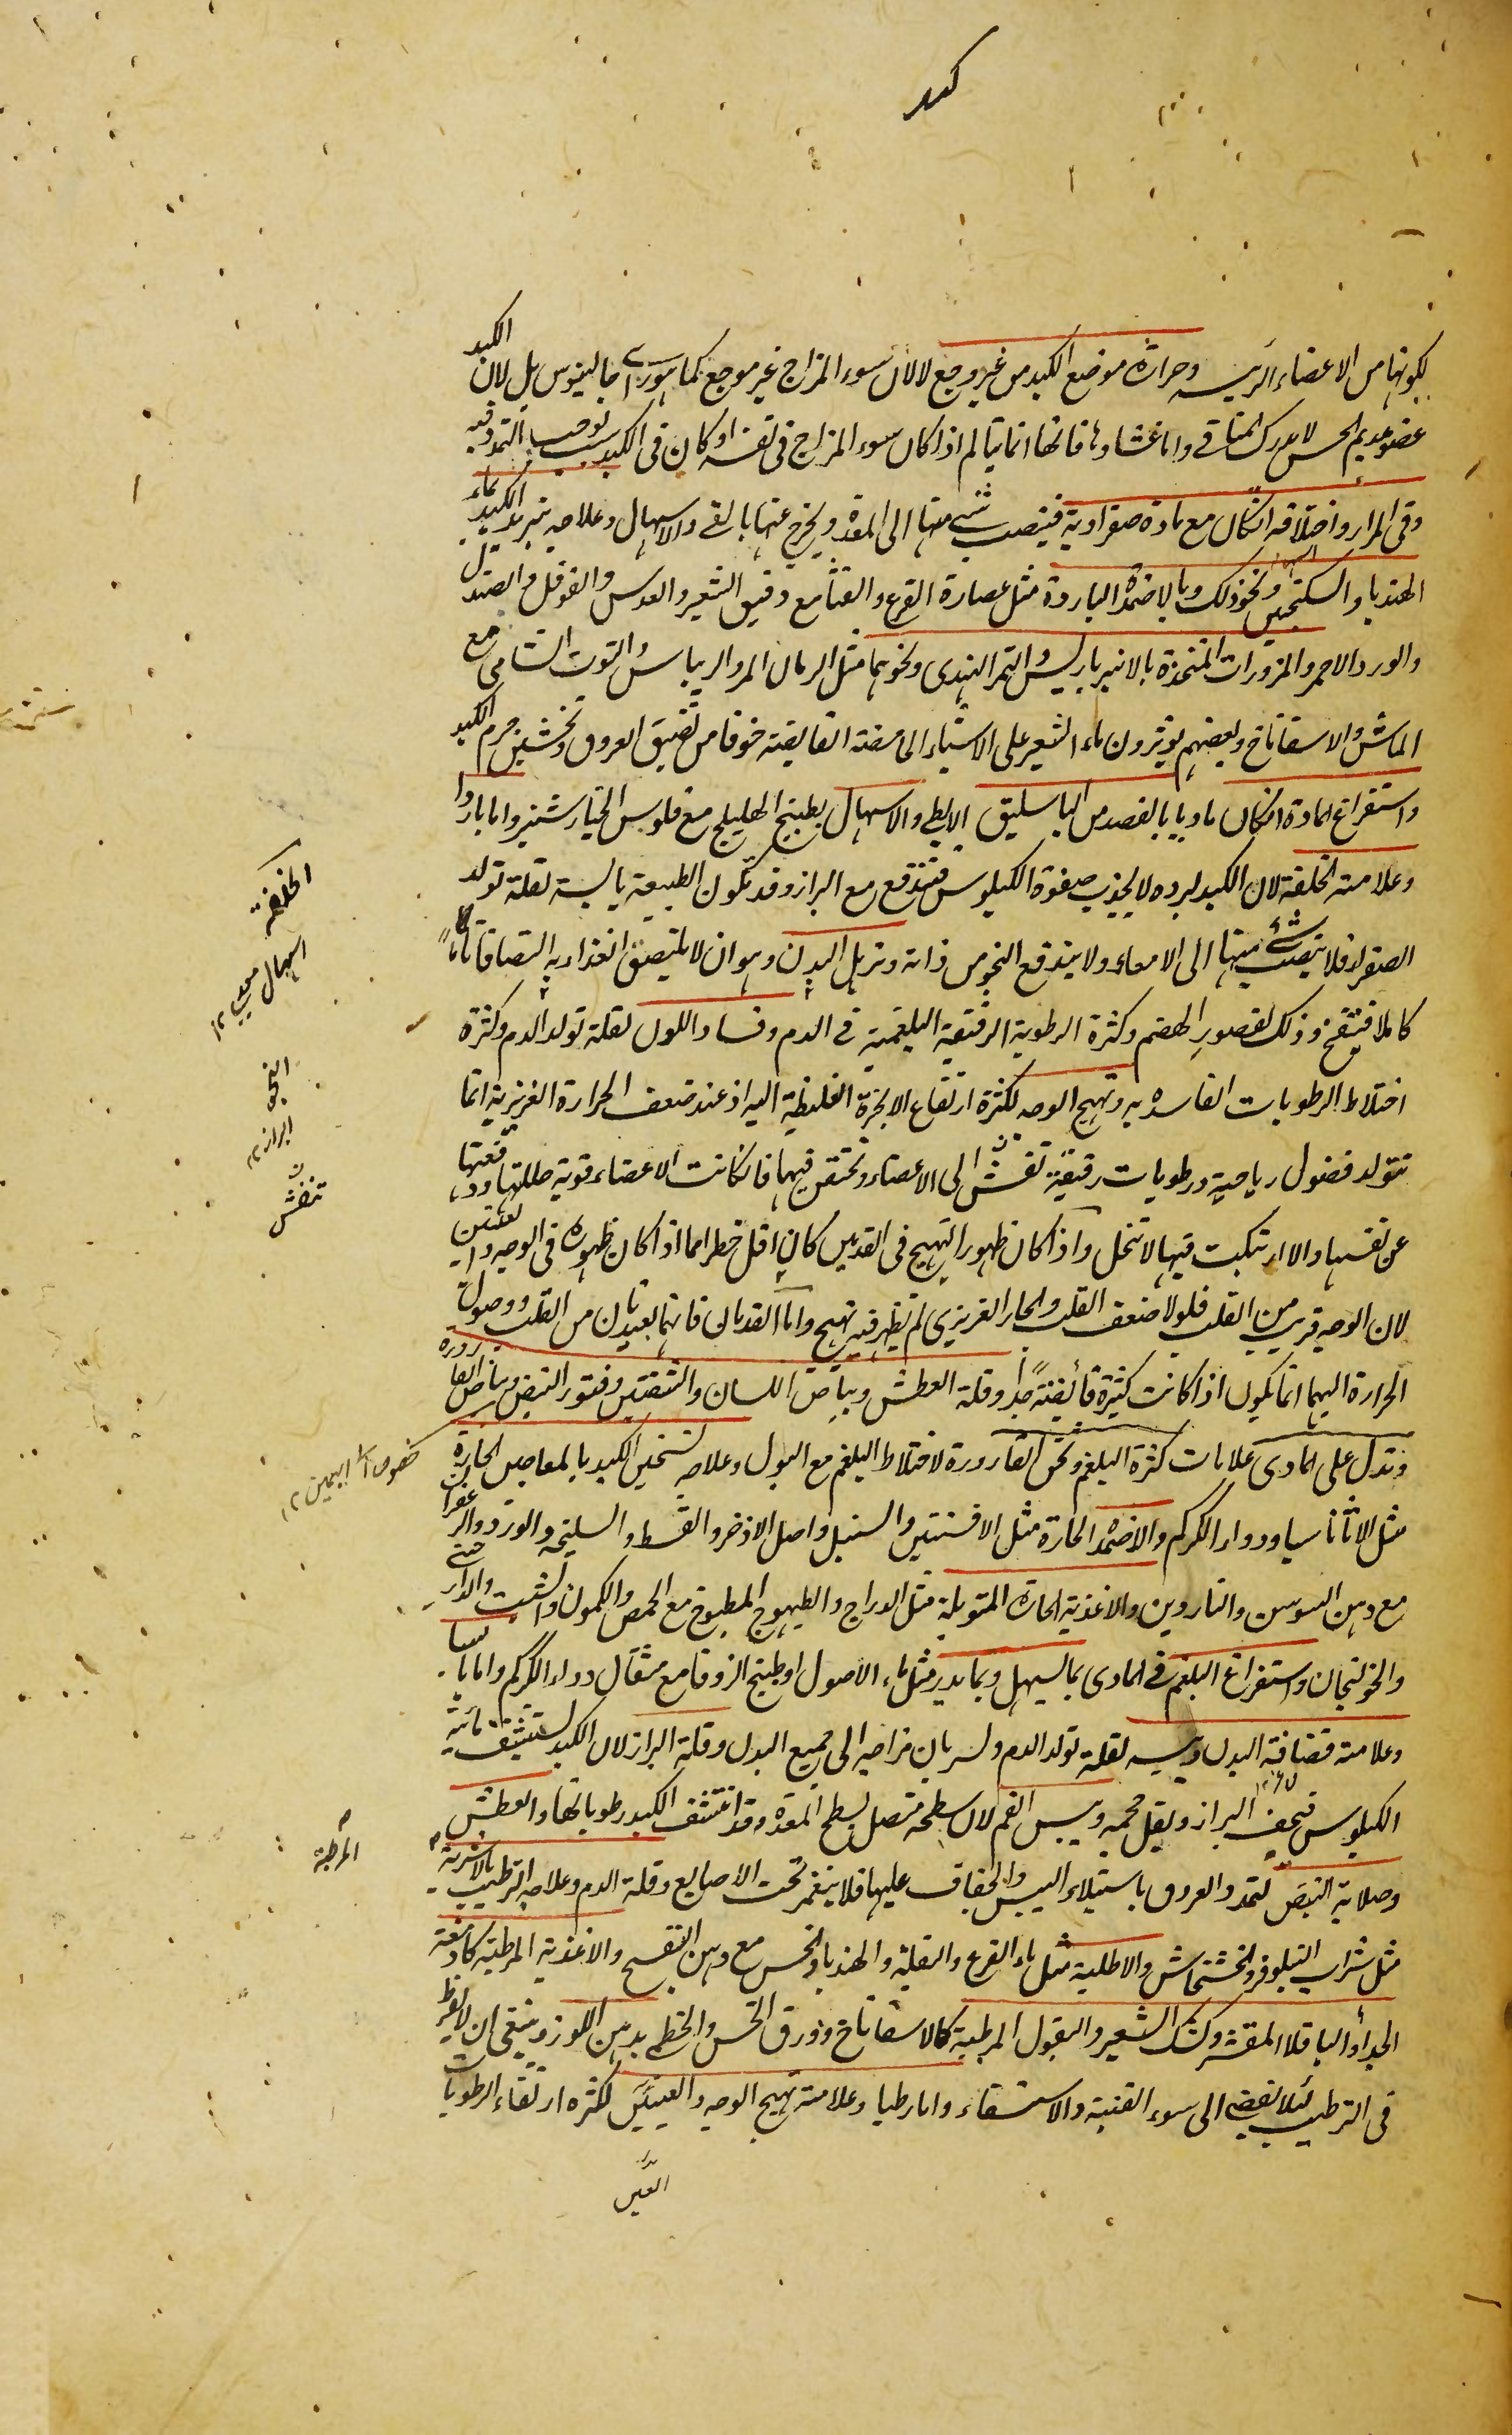 كبد
لكونها من الاعضاء الرئيسه وحرارة موضع الكبد من غير وجع لا لان سوء المزاج غير موجع كما هو رأى جالينوس بل لان الكبد
عضو عديم الحس لا يدرك المنافى واما غشاوها فانها انما يتالم اذا كان سوء المزاج فى نفسه او كان فى الكبد بسبب يوجب التمدد فيه
وقى المرار واختلافه انكان مع مادة صفراوية فينصب شئ منها الى المعدة ويخرج عنها بالقى والاسهال وعلاجه تبريد الكبد بماء
الهندبا والسكنجبين ونحو ذلك وبالاضمدة الباردة مثل عصارة القرع والقثا مع دقيق الشعير والعدس والفوفل والصندل
والورد الاحمر والمزورات المتخذة بالانبرباريس والتمر الهندى ونحوهما مثل الرمان المر والريباس والتوت الشامى مع
الماش والاسفاناخ وبعضهم يوثرون ماء الشعير على الاشياء الحامضة القابضة خوفا من تضييق العروق وتخشين جرم الكبد
واستفراغ المادة انكان ماديا بالفصد من الباسليق الابطى والاسهال بطبيخ الهليلج مع فلوس الخيارشنبر واما باردا
وعلامته الخلفة لان الكبد لبرده لا يجذب صفوة الكيلوس فتندفع مع البراز وقد تكون الطبيعة يابسة لقلة تولد
الصفراء فلا ينصب شئ منها الى الامعاء ولا يندفع النجو من ذاته وترهل البدن وهو ان لا يلتصق الغذاء به التصاقا تاما
كاملا فينتفخ وذلك لقصور الهضم وكثرة الرطوبة الرقيقة البلغمية فى الدم وفساد اللون لقلة تولد الدم وكثرة
اختلاط الرطوبات الفاسده به وتهيج الوجه لكثرة ارتفاع الابخرة الغليظة اليه اذ عند ضعف الحرارة الغريزية انما
تتولد فضول رياحية ورطوبات رقيقة تنفش الى الاعضاء وتحتقن فيها فان كانت الاعضاء قوية حللتها ودفعتها
عن نفسها والا ارتبكت فيها لا تنحل واذا كان ظهور التهيج فى القدمين كان اقل خطرا مما اذا كان ظهوره فى الوجه والعينين
لان الوجه قريب من القلب فلولا ضعف القلب والحار الغريزى لم يظهر فيه تهيج واما القدمان فانهما بعيدتان من القلب ووصول
الحرارة اليهما انما يكون اذا كانت كثيرة فائضة جدا وقلة العطش وبياض اللسان والشفتين وفتور النبض وبياض القارورة
وتدل على المادى علامات كثرة البلغم وثخن القارورة لاختلاط البلغم مع البول وعلاجه تسخين الكبد بالمعاجين الحارة
مثل الاثاناسيا ودواء الكركم والاضمدة الحارة مثل الافسنتين والسنبل واصل الاذخر والقسط والسليخه والورد والزعفران
مع دهن السوسن والناردين والاغذية الحارة المتوبلة مثل الدراج والطيهوج المطبوخ مع الحمص والكمون والشبت والدارچينى
والخولنجان واستفراغ البلغم فى المادى بما يسهل وبما يدر مثل ماء الاصول او طبيخ الزوفا مع مثقال دواء الكركم واما يابسا
وعلامته قضافة البدن ويبسه لقلة تولد الدم ولسريان مزاجه الى جميع البدن وقلة البراز لان الكبد يستنشف مائية
الكيلوس فيجف البراز ويقل حجمه ويبس الفم لان سطحه متصل بسطح المعدة وقد انتشف الكبد رطوباتها والعطش
وصلابة النبض لتمدد العروق باستيلاء اليبس والجفاف عليها فلا ينغمز تحت الاصابع وقلة الدم وعلاجه الترطيب بالاشربة
مثل شراب النيلوفر والخشخاش والاطلية مثل ماء القرع والبقلة والهندبا والخس مع دهن البنفسج والاغذية المرطبة كادمغة
الجداء والباقلا المقشر وكشك الشعير والبقول المرطبة كالاسفاناخ وورق الخس والخطمى بدهن اللوز وينبغى ان لا يفرط
فى الترطيب لئلا يفضى الى سوء القنية والاستسقاء واما رطبا وعلامته تهيج الوجه والعينين لكثرة ارتقاء الرطوبات
الخلفة
اسهال
١٢
النجو
البراز ١٢
تنفش
المرطبة
العين